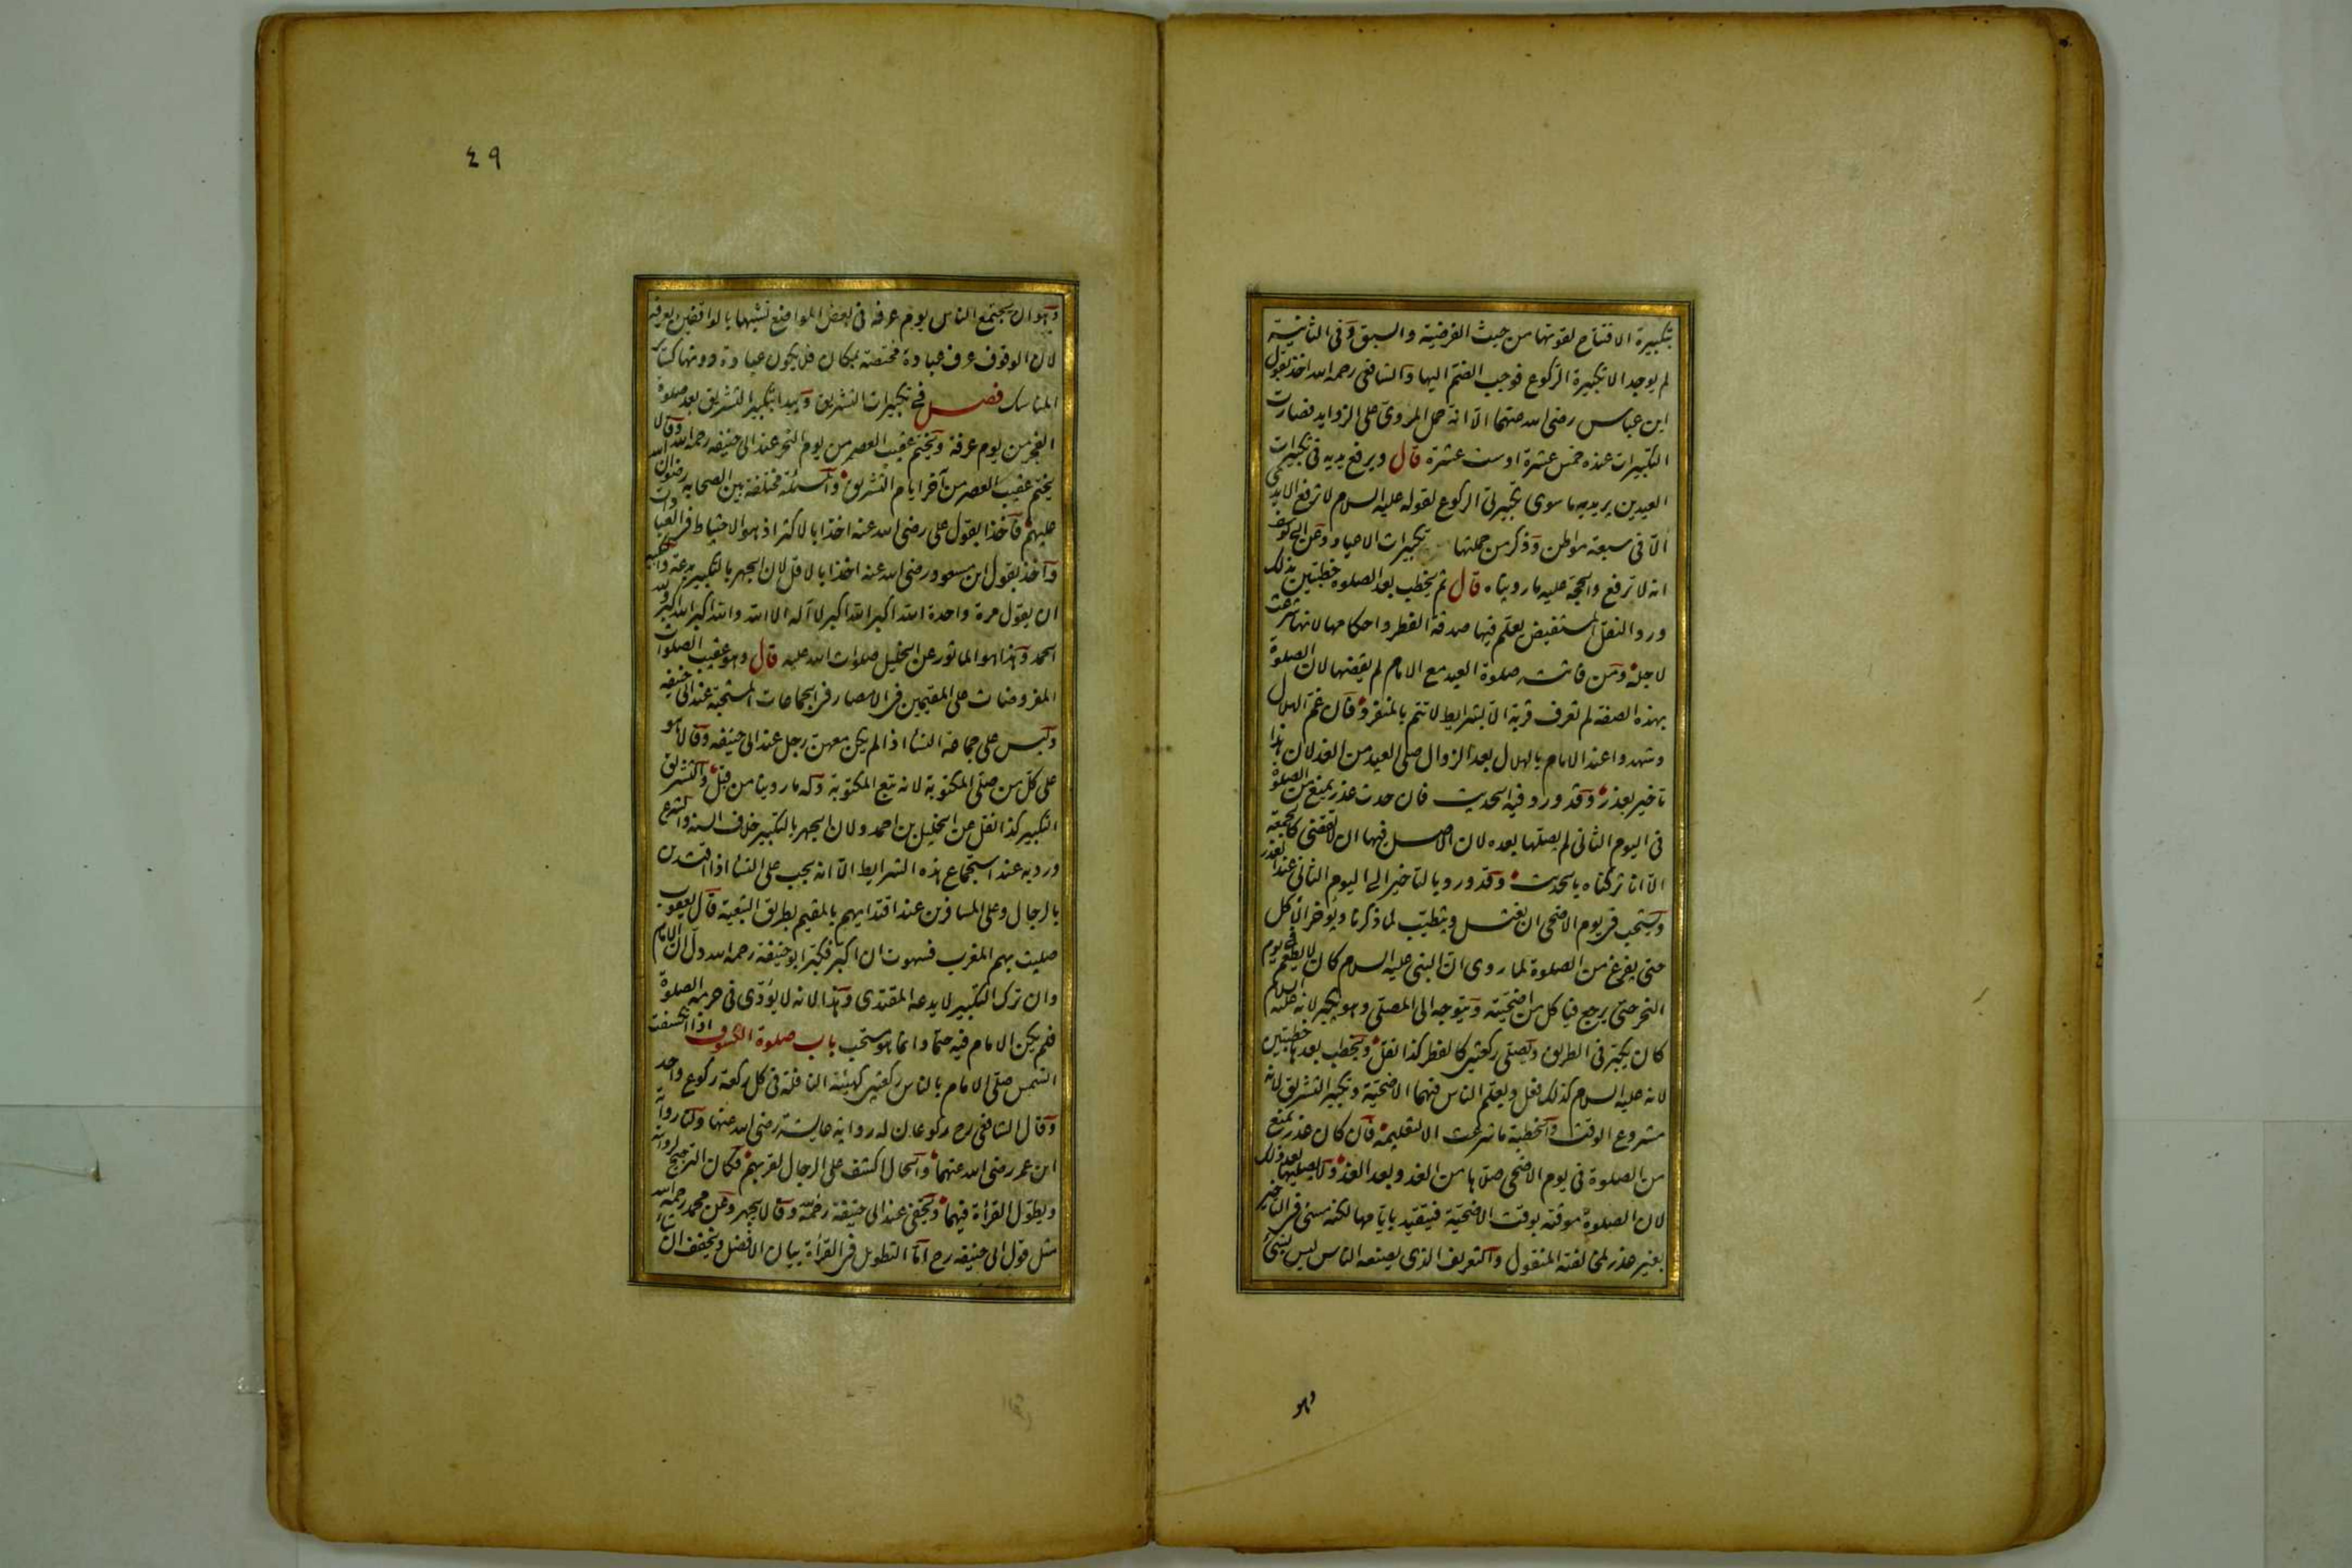 بتكبيرة الافتتاح لقوتها من حيث الفرضية والسبق وفى الثانية
لم يوجد الا تكبيرة الركوع فوجب الضم اليها والشافعى رحمه الله اخذ بقول
ابن عباس رضى الله عنهما الا انه حمل المروى على الزوايد فصارت
التكبيرات عنده خمس عشرة او ست عشرة قال ويرفع يديه فى تكبيرات
العيدين يريد به ما سوى تكبيرتى الركوع لقوله عليه السلام لا ترفع الايدى
الا فى سبعة مواطن وذكر من جملتها تكبيرات الاعياد وعن ابى يوسف
انه لا ترفع والحجة عليه ما رويناه قال ثم يخطب بعد الصلوة خطبتين بذلك
ورد النقل المستفيض يعلم فيها صدقة الفطر واحكامها لانها شرعت
لاجله ومن فاتته صلوة العيد مع الامام لم يقضها لان الصلوة
بهذه الصفة لم تعرف قربة الا بشرايط لا تتم بالمنفرد فان غم الهلال
وشهدوا عند الامام بالهلال بعد الزوال صلى العيد من الغد لان هذا
تاخير بعذر وقد ورد فيه الحديث فان حدث عذر يمنع من الصلوة
فى اليوم الثانى لم يصلها بعده لان الاصل فيها ان لا تقضى كالجمعة
الا انا تركناه بالحديث وقد ورد بالتاخير الى اليوم الثانى عند العذر
ويستحب فى يوم الاضحى ان يغتسل ويتطيب لما ذكرنا ويؤخر الاكل
حتى يفرغ من الصلوة لما روى ان النبى عليه السلام كان لا يطعم فى يوم
النحر حتى يرجع فياكل من اضحيته ويتوجه الى المصلى وهو يكبر لانه عليه السلام
كان يكبر فى الطريق ويصلى ركعتين كالفطر كذا نقل ويخطب بعدها خطبتين
لانه عليه السلام كذلك فعل ويعلم الناس فيهما الاضحية وتكبير التشريق لانه
مشروع الوقت والخطبة ما شرعت الا لتعليمه فان كان عذر يمنع
من الصلوة فى يوم الاضحى صلاها من الغد وبعد الغد ولا يصليها بعد ذلك
لان الصلوة موقتة بوقت الاضحية فيتقيد بايامها لكنه مسئ فى التاخير
بغير عذر لمخالفته المنقول والتعريف الذى يصنعه الناس ليس بشئ
وهو
٤٩
وهو ان يجتمع الناس يوم عرفة فى بعض المواضع تشبيها بالواقفين بعرفة
لان الوقوف عرف عبادة مختصة بمكان فلا يكون عبادة دونها كسائر
المناسك فصل فى تكبيرات التشريق ويبدا بتكبير التشريق بعد صلوة
الفجر من يوم عرفة ويختم عقيب العصر من يوم النحر عند ابى حنيفة رحمه الله وقالا
يختم عقيب العصر من آخر ايام التشريق والمسئلة مختلفة بين الصحابة رضوان الله
عليهم فاخذا بقول على رضى الله عنه اخذا بالاكثر اذ هو الاحتياط فى العبادات
واخذ بقول ابن مسعود رضى الله عنه اخذا بالاقل لان الجهر بالتكبير بدعة والتكبير
ان يقول مرة واحدة الله اكبر الله اكبر لا اله الا الله والله اكبر الله اكبر ولله
الحمد وهذا هو الماثور عن الخليل صلوات الله عليه قال وهو عقيب الصلوات
المفروضات على المقيمين فى الامصار فى الجماعات المستحبة عند ابى حنيفة
وليس على جماعة النساء اذا لم يكن معهن رجل عند ابى حنيفة وقالا هو
على كل من صلى المكتوبة لانه تبع المكتوبة وله ما روينا من قبل والتشريق
التكبير كذا نقل عن الخليل بن احمد ولان الجهر بالتكبير خلاف السنة والشرع
ورد به عند استجماع هذه الشرايط الا انه يجب على النساء اذا اقتدين
بالرجال وعلى المسافرين عند اقتدايهم بالمقيم بطريق التبعية قال يعقوب
صليت بهم المغرب فسهوت ان اكبر فكبر ابو حنيفة رحمه الله دل ان الامام
وان ترك التكبير لا يدعه المقتدى وهذا لانه لا يؤدى فى حرمة الصلوة
فلم يكن الامام فيه حتما وانما هو مستحب باب صلوة الكسوف اذا انكسفت
الشمس صلى الامام بالناس ركعتين كهيئة النافلة فى كل ركعة ركوع واحد
وقال الشافعى رح ركوعان له رواية عايشة رضى الله عنها ولنا رواية
ابن عمر رضى الله عنهما والحال اكشف على الرجال لقربهم فكان الترجيح لروايته
ويطول القراة فيهما ويخفى عند ابى حنيفة رحمه الله وقالا يجهر وعن محمد رحمه الله
مثل قول ابى حنيفة رح اما التطويل فى القراة بيان الافضل ويخفف ان شاء